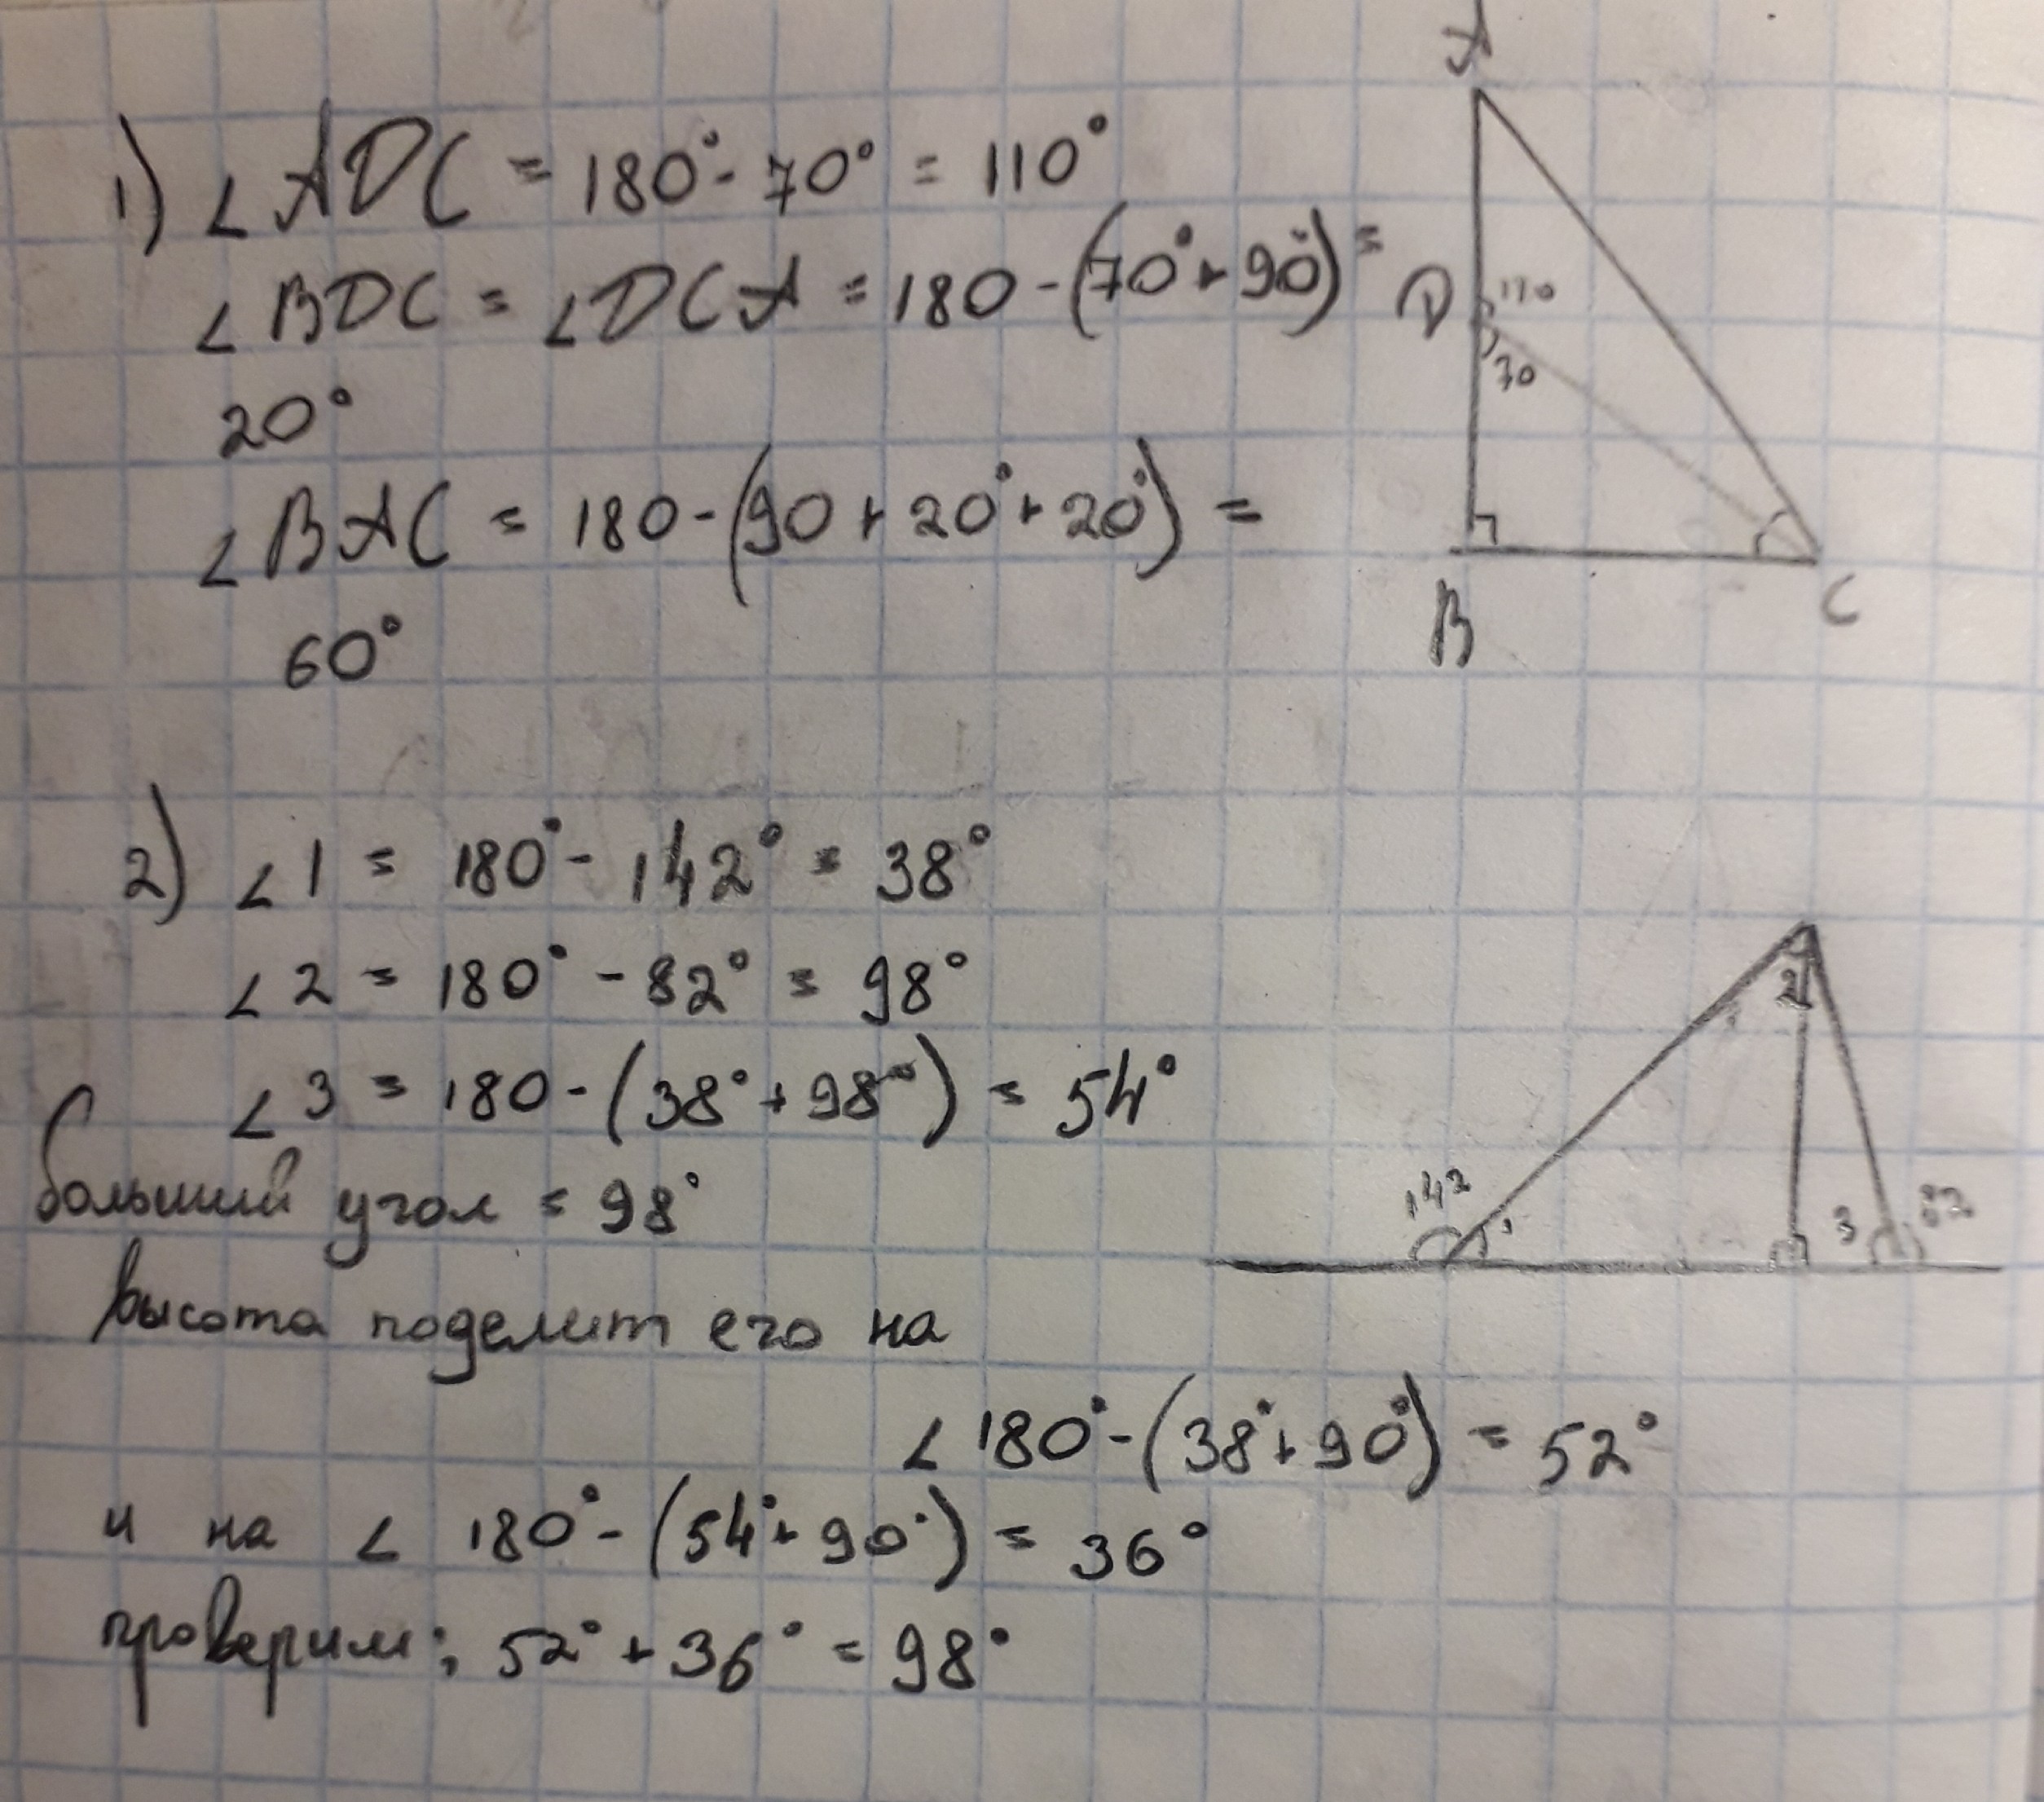 1) ∠ADC = 180° - 70° = 110°
∠BDC = ∠DCA = 180 - (70° + 90°) =
20°
∠BAC = 180 - (90 + 20° + 20°) =
60°
A
D
110
70
B
C
2) ∠1 = 180° - 142° = 38°
∠2 = 180° - 82° = 98°
∠3 = 180 - (38° + 98°) = 54°
больший угол = 98°
высота поделит его на
∠180° - (38° + 90°) = 52°
и на ∠ 180° - (54° + 90°) = 36°
проверим: 52° + 36° = 98°
2
142
1
3
82